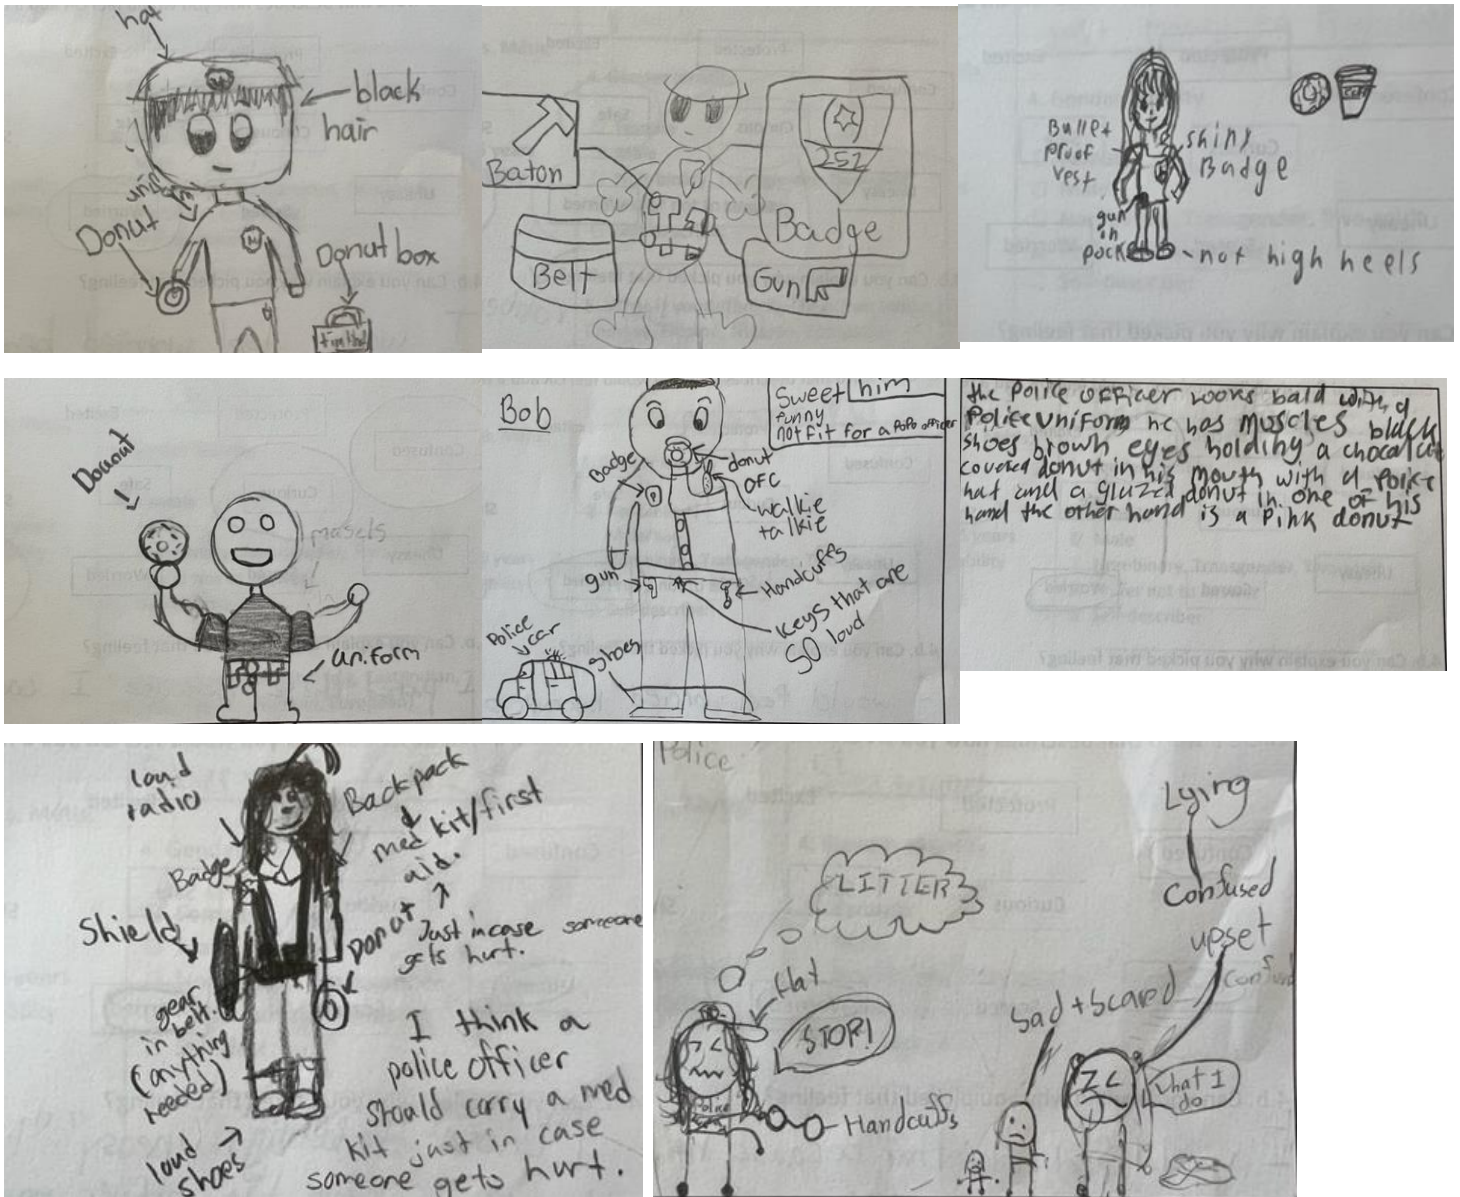 hat
black
hair
uniform
Donut
Donut box
Baton
Belt
252
Badge
Gun
Bullet
proof
vest
shiny
Badge
gun
in
pocket
not high heels
Donout
masels
uniform
Bob
Sweet him
funny
not fit for a PoPo officer
Badge
donut
OFC
walkie
talkie
gun
Handcuffs
Keys that are
SO loud
Police
car
shoes
the Police officer looks bald with a
Police uniform he has muscles black
shoes brown eyes holding a chocalate
covered donut in his mouth with a Police
hat and a glazed donut in one of his
hand the other hand is a Pink donut
loud
radio
Backpack
med kit/first
aid.
Just incase someone
gets hurt.
Badge
Shield
Donut
gear
in belt.
(anything
needed)
loud
shoes
I think a
police officer
should carry a med
kit just in case
someone gets hurt.
Police
LITTER
Hat
STOP!
Police
Handcuffs
Lying
Confused
upset
Sad + Scared
what I
do